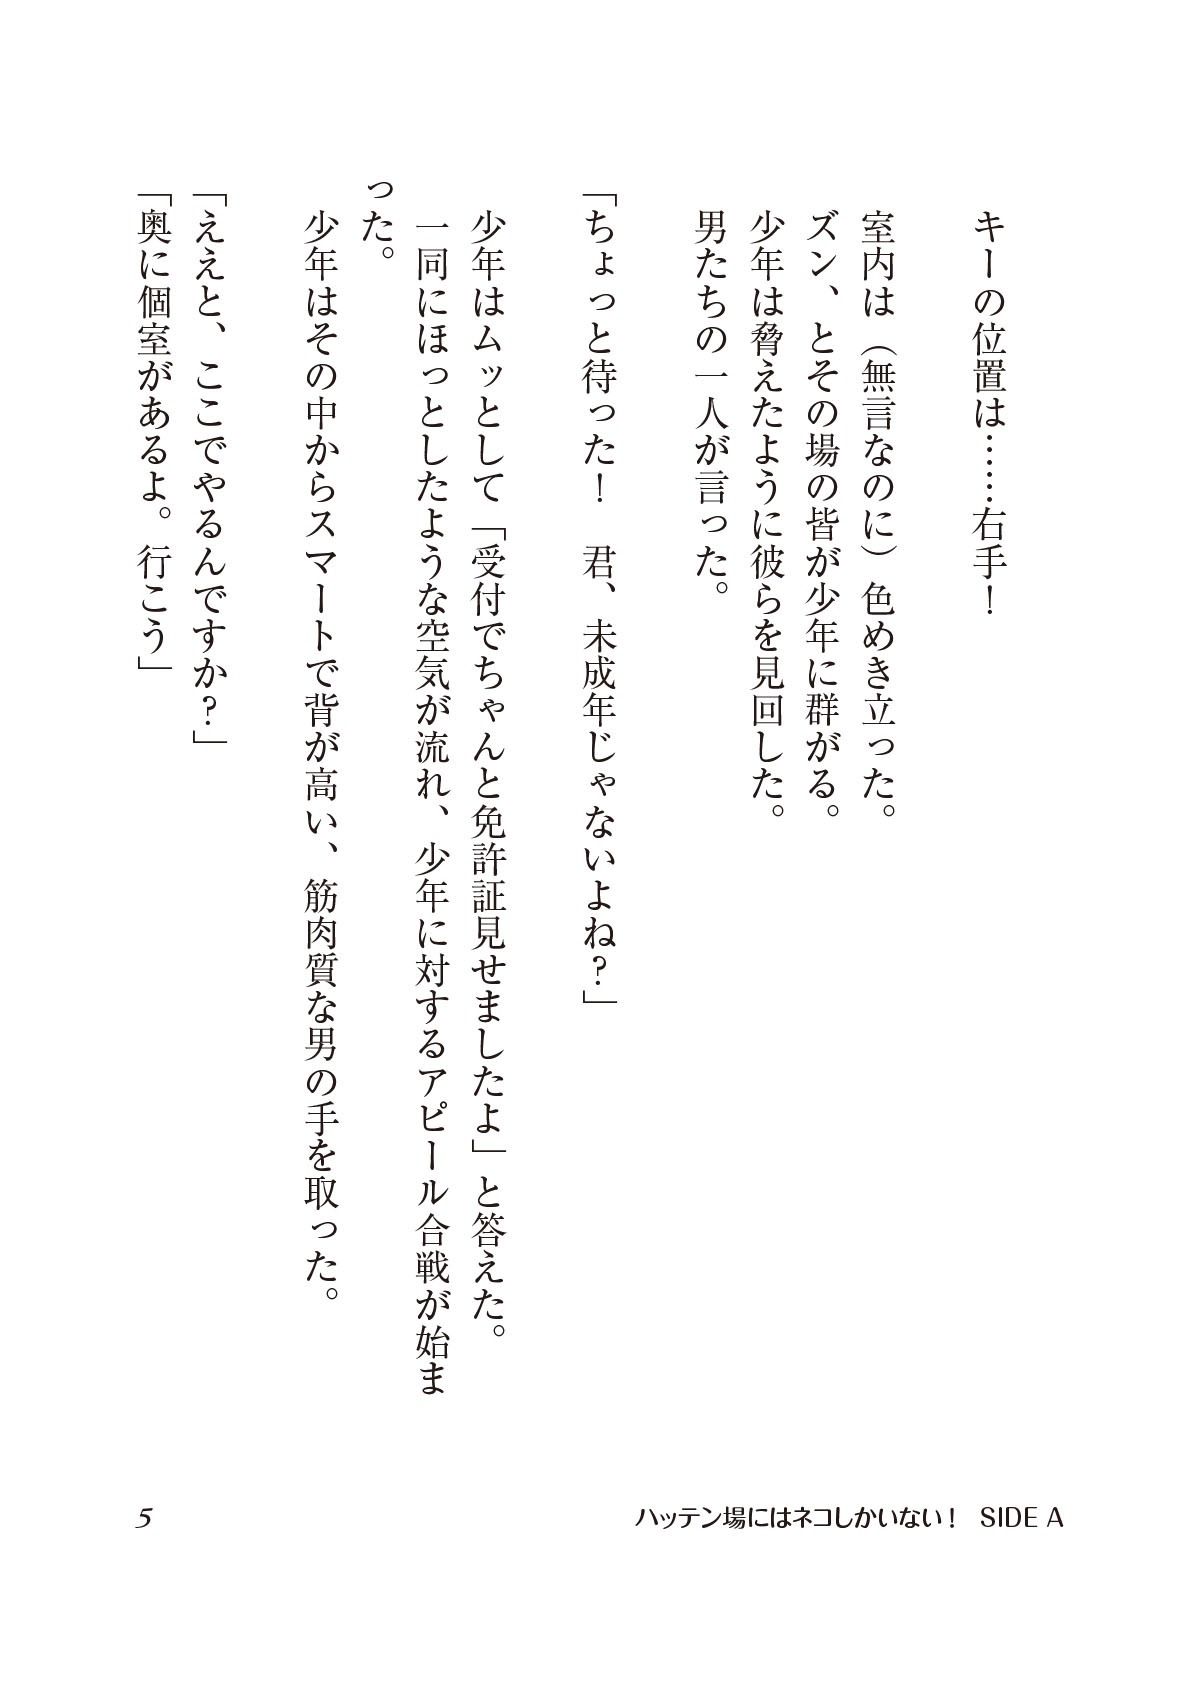 キーの位置は……右手！
室内は（無言なのに）色めき立った。
ズン、とその場の皆が少年に群がる。
少年は脅えたように彼らを見回した。
男たちの一人が言った。
「ちょっと待った！　君、未成年じゃないよね？」
少年はムッとして「受付でちゃんと免許証見せましたよ」と答えた。
一同にほっとしたような空気が流れ、少年に対するアピール合戦が始ま
った。
少年はその中からスマートで背が高い、筋肉質な男の手を取った。
「ええと、ここでやるんですか？」
「奥に個室があるよ。行こう」
5
ハッテン場にはネコしかいない！　SIDE A